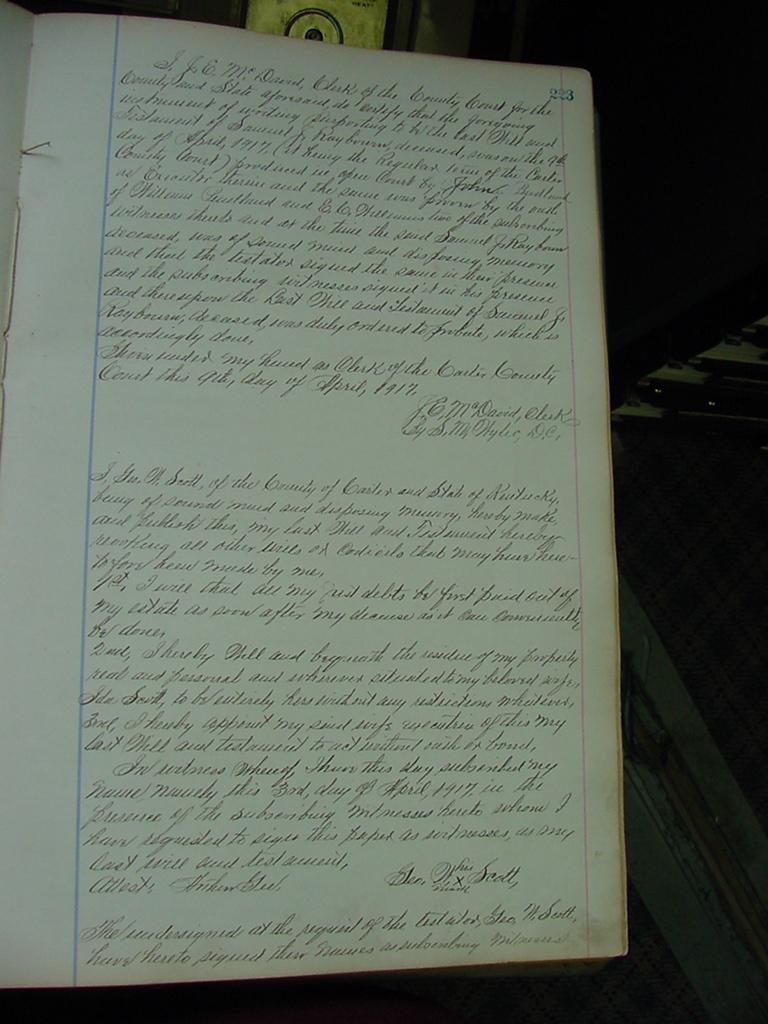 223
I, J. E. McDavid, Clerk of the County Court for the
County and State aforesaid, do certify that the foregoing
instrument of writing purporting to be the last Will and
Testament of Samuel J. Raybourn, deceased, was on the 9th
day of April, 1917, (it being the Regular term of the Carter
County Court) produced in open Court by John
as Executor therein and the same was proven by the oath
of William and E. C. Williams two of the subscribing
witnesses thereto and at the time the said Samuel J. Raybourn
deceased, was of sound mind and disposing memory
and that the testator signed the same in their presence
and the subscribing witnesses signed it in his presence
and thereupon the Last Will and Testament of Samuel J.
Raybourn, deceased, was duly ordered to probate, which is
accordingly done,
Given under my hand as Clerk of the Carter County
Court this 9th, day of April, 1917,
J. E. McDavid, Clerk
By S. M. Hylic, D. C.,
I, Geo. W. Scott, of the County of Carter and State of Kentucky,
being of sound mind and disposing memory, hereby make
and publish this, my last Will and Testament hereby
revoking all other wills or Codicils that may have here-
tofore been made by me,
1st, I will that all my just debts be first paid out of
my estate as soon after my decease as it can conveniently
be done,
2nd, I hereby Will and bequeath the residue of my property
real and personal and wherever situated to my beloved wife,
Ida Scott, to be entirely hers without any restrictions whatever,
3rd, I hereby appoint my said wife executrix of this my
last Will and testament to act without oath or bond,
In witness whereof, I have this day subscribed my
name namely this 3rd, day of April, 1917 in the
presence of the subscribing witnesses hereto whom I
have requested to sign this paper as witnesses, as my
last will and testament,
Attest, Geo. W. his x mark Scott,
The undersigned at the request of the testator, Geo. W. Scott,
have hereto signed their names as subscribing witnesses